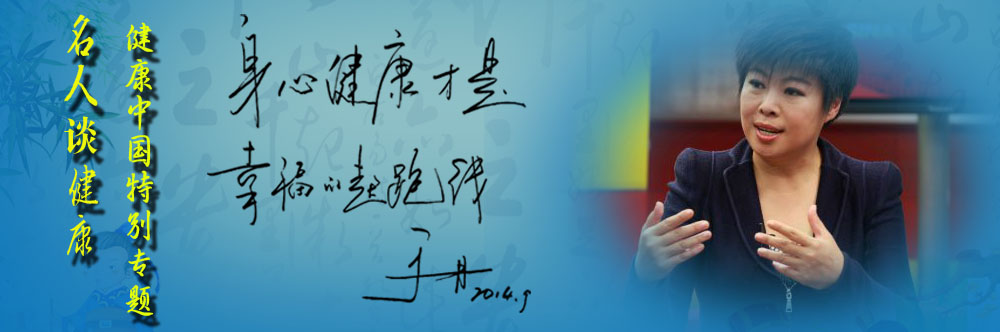 名人谈健康
健康中国特别专题
身心健康才是
幸福的起跑线
于丹
2014.9